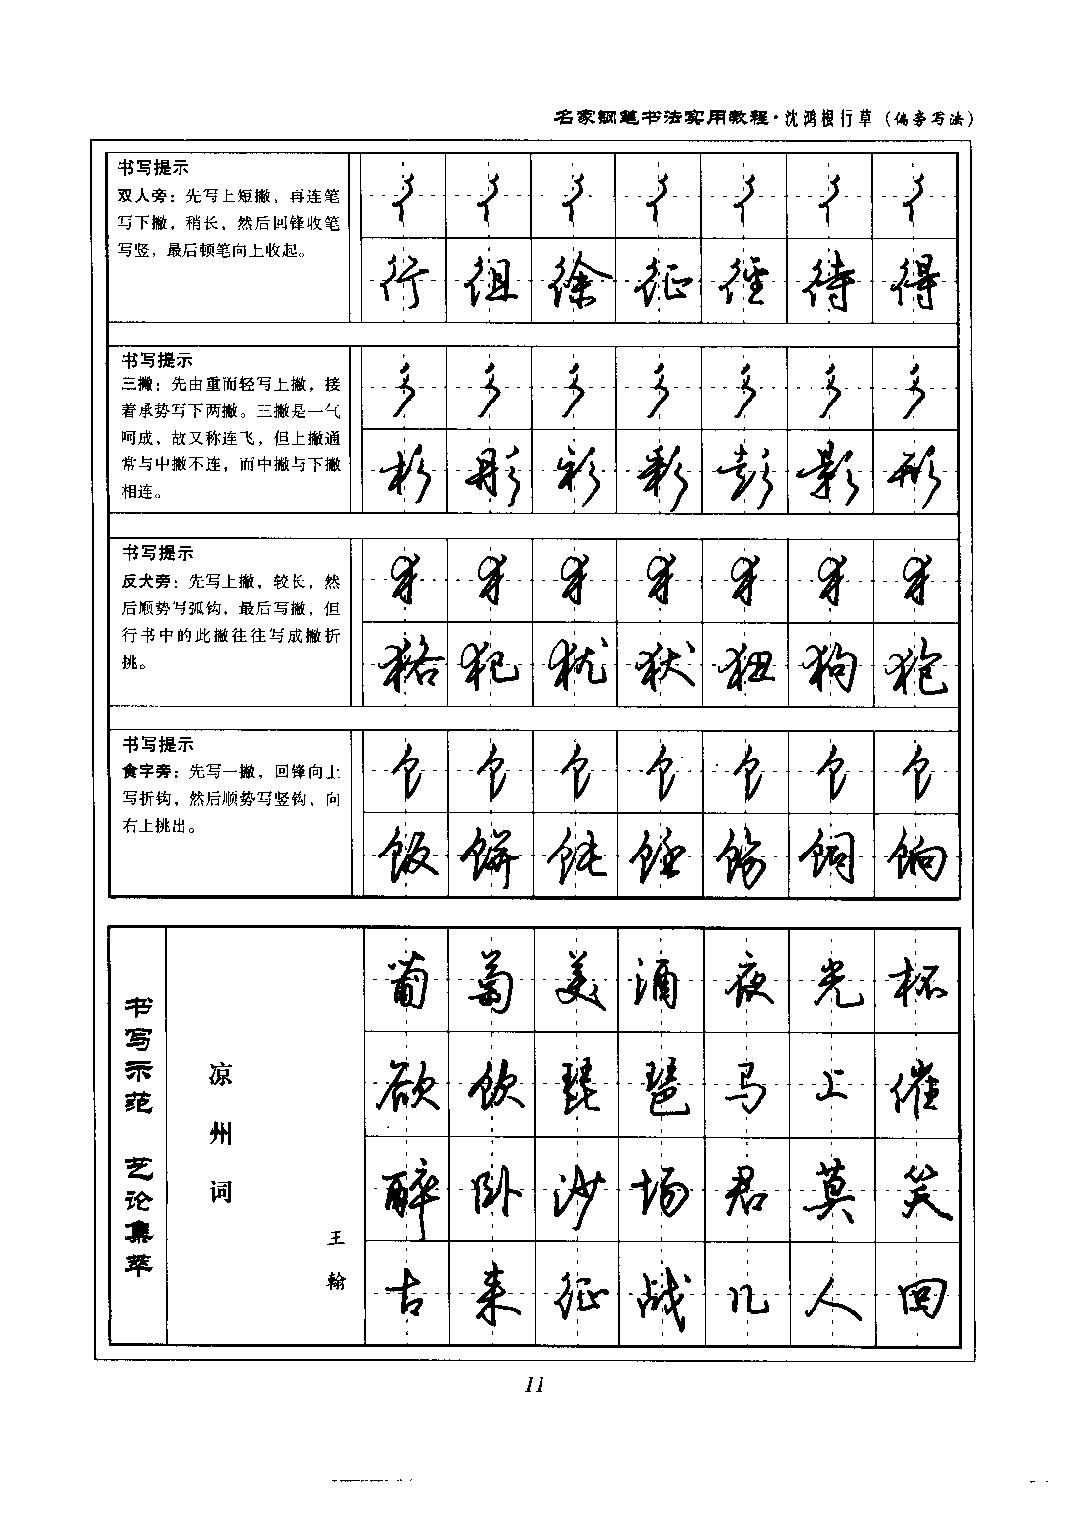 名家钢笔书法实用教程·沈鸿根行草(偏旁写法)
书写提示
双人旁：先写上短撇，再连笔
写下撇，稍长，然后回锋收笔
写竖，最后顿笔向上收起。
彳 彳 彳 彳 彳 彳 彳
行 徂 徐 征 径 待 得
书写提示
三撇：先由重而轻写上撇，接
着承势写下两撇。三撇是一气
呵成，故又称连飞，但上撇通
常与中撇不连，而中撇与下撇
相连。
彡 彡 彡 彡 彡 彡 彡
杉 彤 衫 彩 彭 影 形
书写提示
反犬旁：先写上撇，较长，然
后顺势写弧钩，最后写撇，但
行书中的此撇往往写成撇折
挑。
犭 犭 犭 犭 犭 犭 犭
狢 犯 犹 狱 狃 狗 狍
书写提示
食字旁：先写一撇，回锋向上
写折钩，然后顺势写竖钩，向
右上挑出。
饣 饣 饣 饣 饣 饣 饣
饭 饼 饨 饪 饧 饲 饷
书写示范 艺论集萃
凉州词
王翰
葡萄美酒夜光杯
欲饮琵琶马上催
醉卧沙场君莫笑
古来征战几人回
11